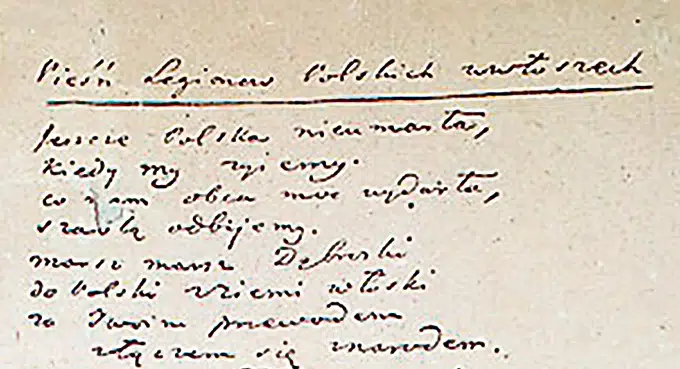 Pieśń Legionów Polskich wewłoszech
Jeszcze Polska nieumarła,
kiedy my żyjemy.
co nam obca moc wydarła,
szablą odbijemy.
marsz marsz Dąbroski
do Polski z ziemi włoski
za Twoim przewodem
złączem się znarodem.